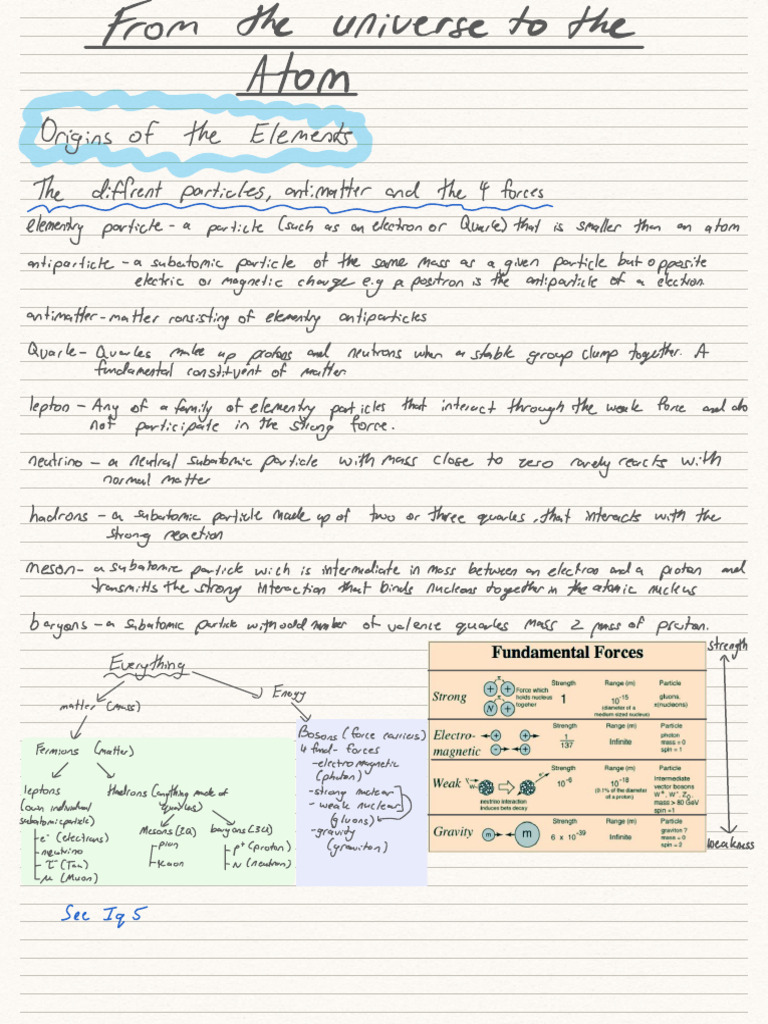 From the universe to the
Atom
Origins of the Elements
The diffrent particles, antimatter and the 4 forces
elementry particle - a particle (such as an electron or Quark) that is smaller than an atom
antiparticle - a subatomic particle of the same mass as a given particle but opposite
electric or magnetic charge e.g a positron is the antiparticle of a electron
antimatter - matter consisting of elementry antiparticles
Quark - Quarks make up protons and neutrons when a stable group clump together. A
fundamental constituent of matter
lepton - Any of a family of elementry particles that interact through the weak force and do
not participate in the strong force.
neutrino - a neutral subatomic particle with mass close to zero rarely reacts with
normal matter
hadrons - a subatomic particle made up of two or three quarks, that interacts with the
strong reaction
meson - a subatomic particle wich is intermediate in mass between an electron and a proton and
transmitts the strong interaction that binds nucleons together in the atomic nucleus
baryons - a subatomic particle with odd number of valence quarks mass ≥ mass of proton.
Everything
matter (mass)
Energy
Fermions (matter)
leptons
(own individual
subatomic particle)
e⁻ (electrons)
neutrino
τ⁻ (Tau)
μ (Muon)
Hadrons (anything made of
quarks)
Mesons (2Q)
pion
kaon
baryons (3Q)
p⁺ (proton)
N (neutron)
Bosons (force carriers)
4 fund- forces
- electromagnetic
(photon)
- strong nuclear
- weak nuclear
(gluons)
- gravity
(graviton)
Fundamental Forces
Strong
Force which
holds nucleus
together
Strength
1
Range (m)
10⁻¹⁵
(diameter of a
medium sized nucleus)
Particle
gluons,
π(nucleons)
Electro-
magnetic
Strength
1/137
Range (m)
Infinite
Particle
photon
mass = 0
spin = 1
Weak
neutrino interaction
induces beta decay
Strength
10⁻⁶
Range (m)
10⁻¹⁸
(0.1% of the diameter
of a proton)
Particle
Intermediate
vector bosons
W⁺, W⁻, Z₀,
mass > 80 GeV
spin = 1
Gravity
m
m
Strength
6 x 10⁻³⁹
Range (m)
Infinite
Particle
graviton ?
mass = 0
spin = 2
strength
weakness
See Iq 5